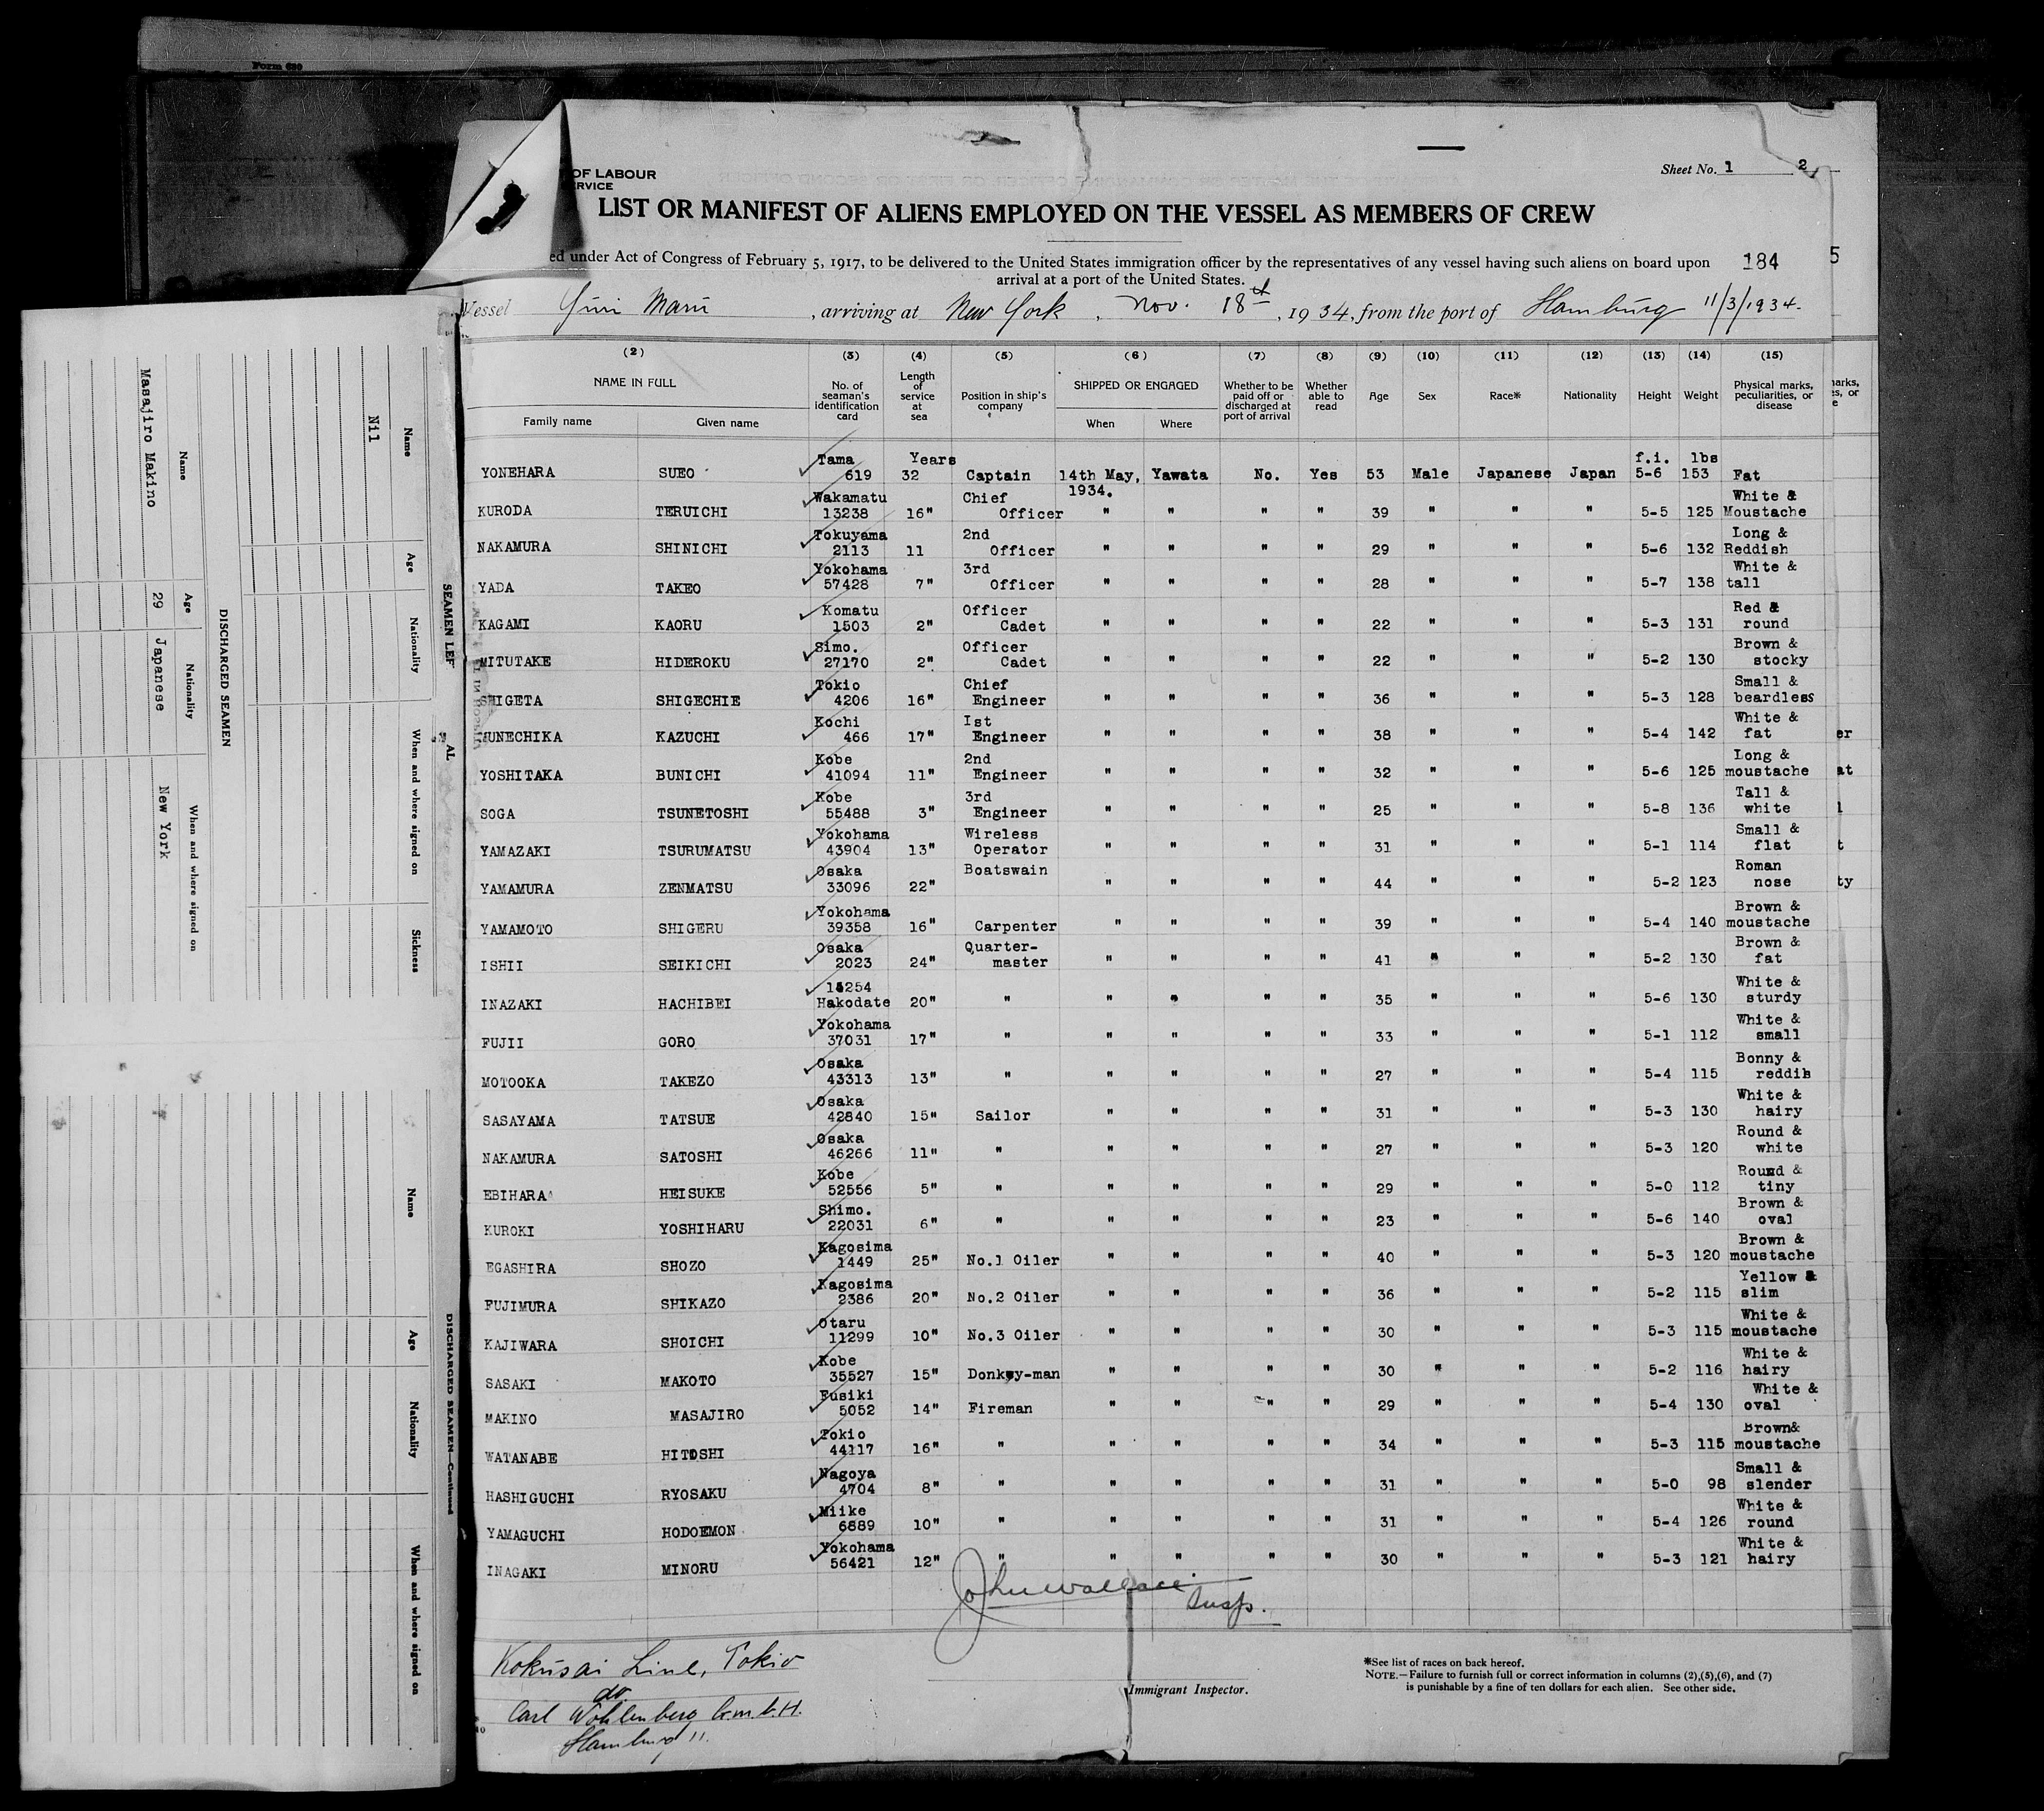 Form 630
OF LABOUR
SERVICE
Sheet No. 1 2
LIST OR MANIFEST OF ALIENS EMPLOYED ON THE VESSEL AS MEMBERS OF CREW
ed under Act of Congress of February 5, 1917, to be delivered to the United States immigration officer by the representatives of any vessel having such aliens on board upon
arrival at a port of the United States.
184 5
Vessel Maru , arriving at New York , Nov. 18th , 1934, from the port of Hamburg 11/3/1934.
(2) (3) (4) (5) (6) (7) (8) (9) (10) (11) (12) (13) (14) (15)
NAME IN FULL No. of seaman's identification card Length of service at sea Position in ship's company SHIPPED OR ENGAGED Whether to be paid off or discharged at port of arrival Whether able to read Age Sex Race* Nationality Height Weight Physical marks, peculiarities, or disease
Family name Given name When Where
Tama Years f.i. lbs
YONEHARA SUEO 619 32 Captain 14th May, 1934. Yawata No. Yes 53 Male Japanese Japan 5-6 153 Fat
KURODA TERUICHI Wakamatu 13238 16" Chief Officer " " " " 39 " " " 5-5 125 White & Moustache
NAKAMURA SHINICHI Tokuyama 2113 11 2nd Officer " " " " 29 " " " 5-6 132 Long & Reddish
YADA TAKEO Yokohama 57428 7" 3rd Officer " " " " 28 " " " 5-7 138 White & tall
KAGAMI KAORU Komatu 1503 2" Officer Cadet " " " " 22 " " " 5-3 131 Red & round
MITUTAKE HIDEROKU Simo. 27170 2" Officer Cadet " " " " 22 " " " 5-2 130 Brown & stocky
SHIGETA SHIGECHIE Tokio 4206 16" Chief Engineer " " " " 36 " " " 5-3 128 Small & beardless
MUNECHIKA KAZUCHI Kochi 466 17" Ist Engineer " " " " 38 " " " 5-4 142 White & fat
YOSHITAKA BUNICHI Kobe 41094 11" 2nd Engineer " " " " 32 " " " 5-6 125 Long & moustache
SOGA TSUNETOSHI Kobe 55488 3" 3rd Engineer " " " " 25 " " " 5-8 136 Tall & white
YAMAZAKI TSURUMATSU Yokohama 43904 13" Wireless Operator " " " " 31 " " " 5-1 114 Small & flat
YAMAMURA ZENMATSU Osaka 33096 22" Boatswain " " " " 44 " " " 5-2 123 Roman nose
YAMAMOTO SHIGERU Yokohama 39358 16" Carpenter " " " " 39 " " " 5-4 140 Brown & moustache
ISHII SEIKICHI Osaka 2023 24" Quarter-master " " " " 41 " " " 5-2 130 Brown & fat
INAZAKI HACHIBEI Hakodate 20" " " " " " 35 " " " 5-6 130 White & sturdy
FUJII GORO Yokohama 37031 17" " " " " " 33 " " " 5-1 112 White & small
MOTOOKA TAKEZO Osaka 43313 13" " " " " " 27 " " " 5-4 115 Bonny & reddih
SASAYAMA TATSUE Osaka 42840 15" Sailor " " " " 31 " " " 5-3 130 White & hairy
NAKAMURA SATOSHI Osaka 46266 11" " " " " " 27 " " " 5-3 120 Round & white
EBIHARA HEISUKE Kobe 52556 5" " " " " " 29 " " " 5-0 112 Round & tiny
KUROKI YOSHIHARU Shimo. 22031 6" " " " " " 23 " " " 5-6 140 Brown & oval
EGASHIRA SHOZO Kagosima 1449 25" No.1 Oiler " " " " 40 " " " 5-3 120 Brown & moustache
FUJIMURA SHIKAZO Kagosima 2386 20" No.2 Oiler " " " " 36 " " " 5-2 115 Yellow & slim
KAJIWARA SHOICHI Otaru 11299 10" No.3 Oiler " " " " 30 " " " 5-3 115 White & moustache
SASAKI MAKOTO Kobe 35527 15" Donkey-man " " " " 30 " " " 5-2 116 White & hairy
MAKINO MASAJIRO Fusiki 5052 14" Fireman " " " " 29 " " " 5-4 130 White & oval
WATANABE HITOSHI Tokio 44117 16" " " " " " 34 " " " 5-3 115 Brown& moustache
HASHIGUCHI RYOSAKU Nagoya 4704 8" " " " " " 31 " " " 5-0 98 Small & slender
YAMAGUCHI HODOEMON Miike 6889 10" " " " " " 31 " " " 5-4 126 White & round
INAGAKI MINORU Yokohama 56421 12" " " " " " 30 " " " 5-3 121 White & hairy
John Wallace
Insp.
Immigrant Inspector.
Kokusai Line, Tokio
Carl Wohlenberg G.m.b.H.
Hamburg 11.
*See list of races on back hereof.
NOTE.—Failure to furnish full or correct information in columns (2),(5),(6), and (7)
is punishable by a fine of ten dollars for each alien. See other side.
SEAMEN LEF
AL
Name Age Nationality When and where signed on Sickness
Nil
DISCHARGED SEAMEN
Name Age Nationality When and where signed on
Masajiro Makino 29 Japanese New York
DISCHARGED SEAMEN—Continued
Name Age Nationality When and where signed on